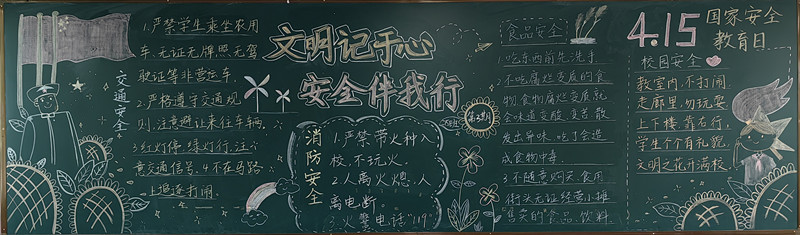 交通安全
1.严禁学生乘坐农用
车、无证无牌照无驾
驶证等非营运车.
2.严格遵守交通规
则,注意避让来往车辆.
3.红灯停,绿灯行,注
意交通信号.4.不在马路
上追逐打闹.
文明记于心
安全伴我行
第2期
消防安全
1.严禁带火种入
校,不玩火
2.人离火熄,人
离电断.
3.火警电话"119"
食品安全
1.吃东西前先洗手.
2.不吃腐烂变质的食
物,食物腐烂变质就
会味道变酸、变苦,散
发出异味,吃了会造
成食物中毒.
3.不随意购买、食用
街头无证经营小摊
售卖的食品、饮料
4.15
国家安全
教育日
校园安全
教室内,不打闹.
走廊里,勿玩耍
上下楼,靠右行,
学生个个有礼貌
文明之花开满校.